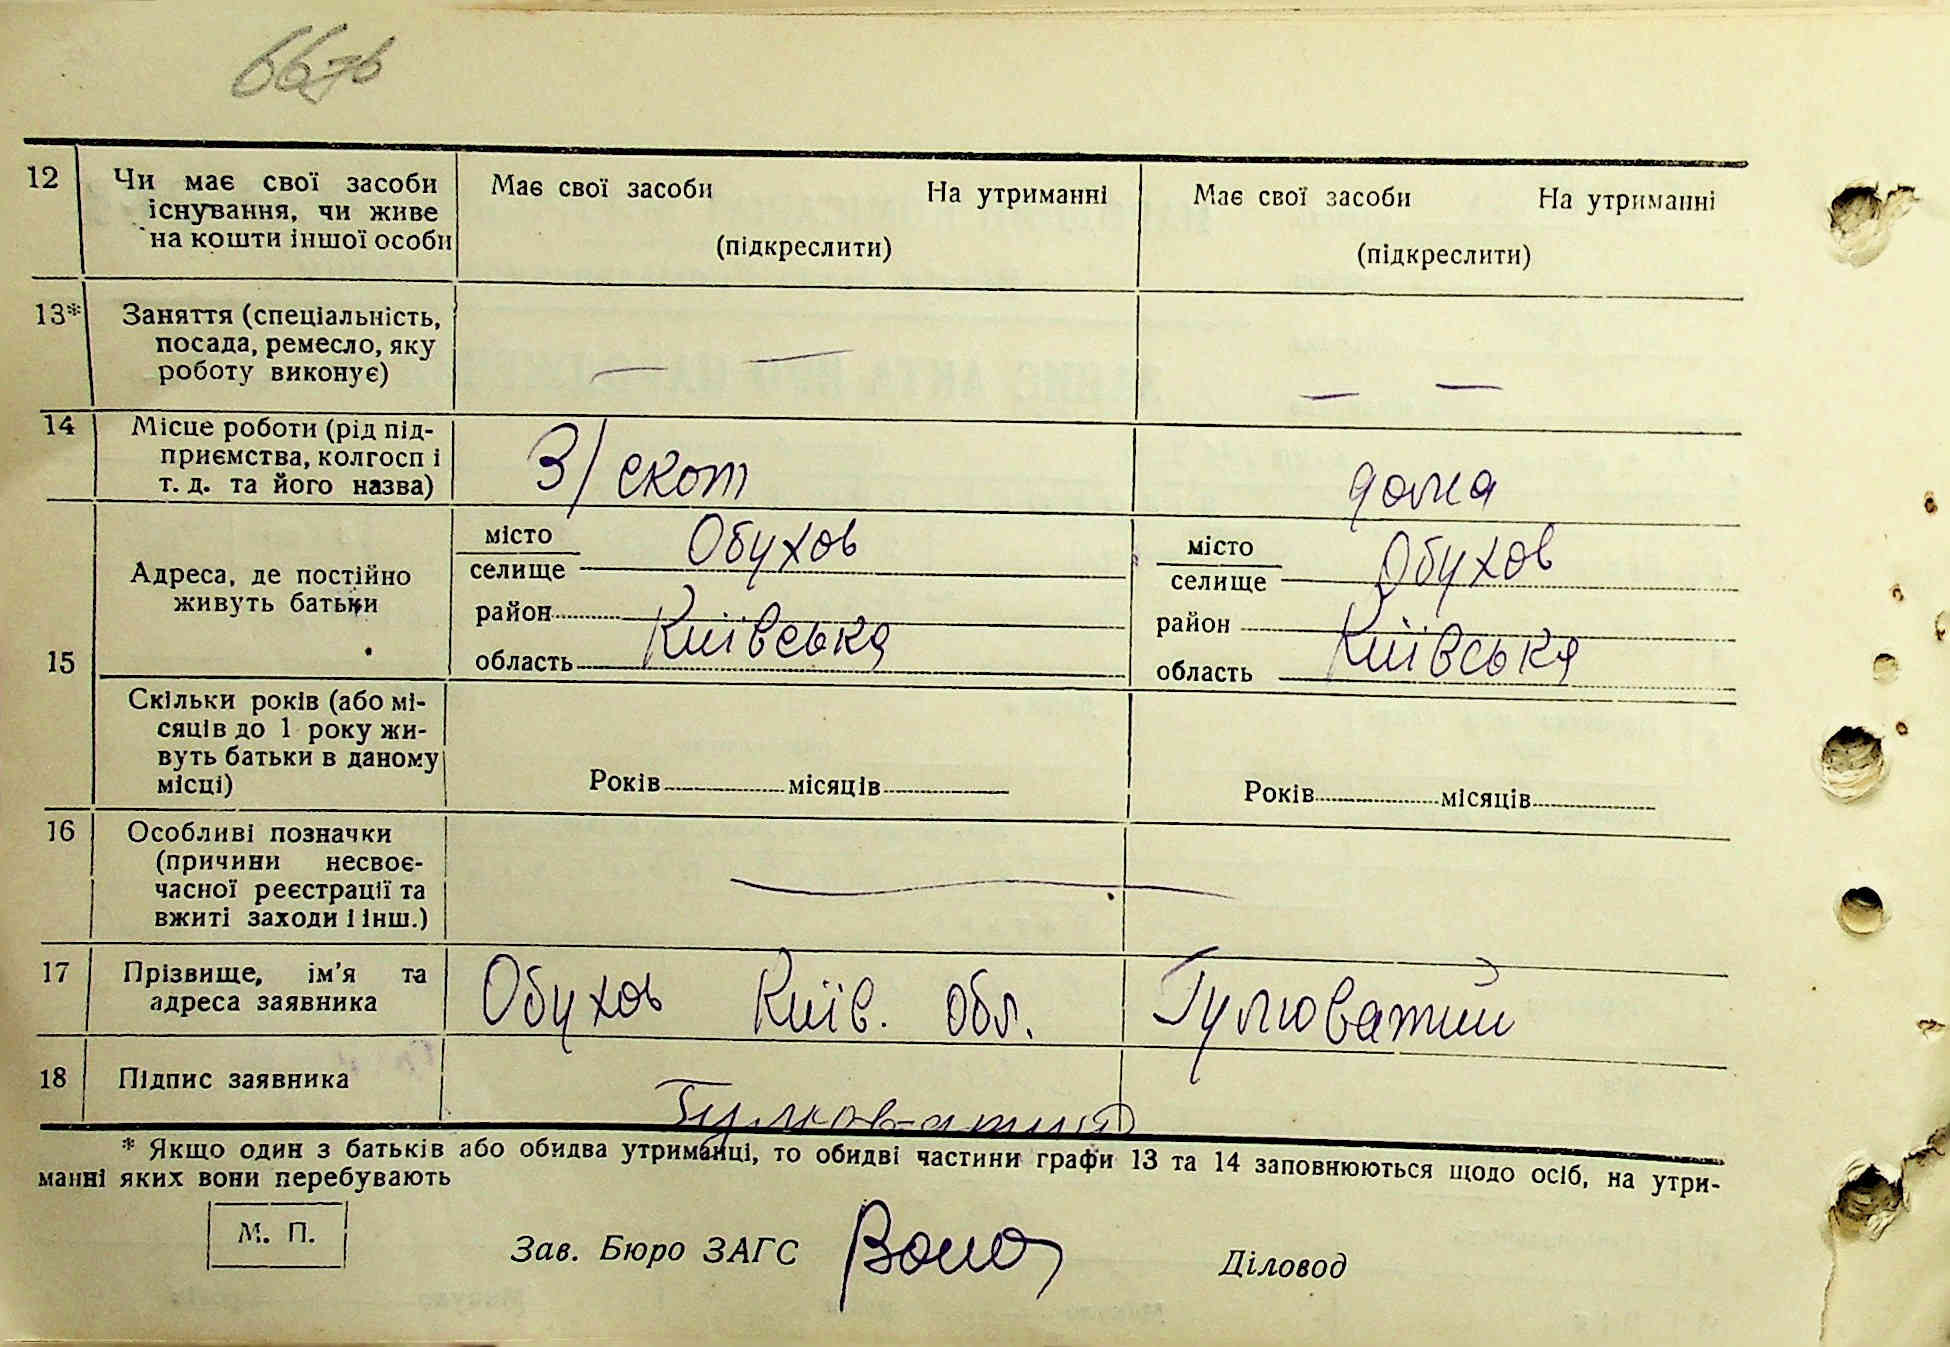 12 Чи має свої засоби Має свої засоби На утриманні Має свої засоби На утриманні
існування, чи живе
на кошти іншої особи (підкреслити) (підкреслити)
13* Заняття (спеціальність,
посада, ремесло, яку
роботу виконує) — — — —
14 Місце роботи (рід під-
приємства, колгосп і
т. д. та його назва) З/скот дома
15 Адреса, де постійно
живуть батьки
місто Обухов місто Обухов
селище селище
район район
область Київська область Київська
Скільки років (або мі-
сяців до 1 року жи-
вуть батьки в даному
місці) Років місяців Років місяців
16 Особливі позначки
(причини несвоє-
часної реєстрації та
вжиті заходи і інш.) —
17 Прізвище, ім'я та
адреса заявника Обухов Київ. обл. Гулюватий
18 Підпис заявника Гулюватий
* Якщо один з батьків або обидва утриманці, то обидві частини графи 13 та 14 заповнюються щодо осіб, на утри-
манні яких вони перебувають
М. П.
Зав. Бюро ЗАГС Діловод